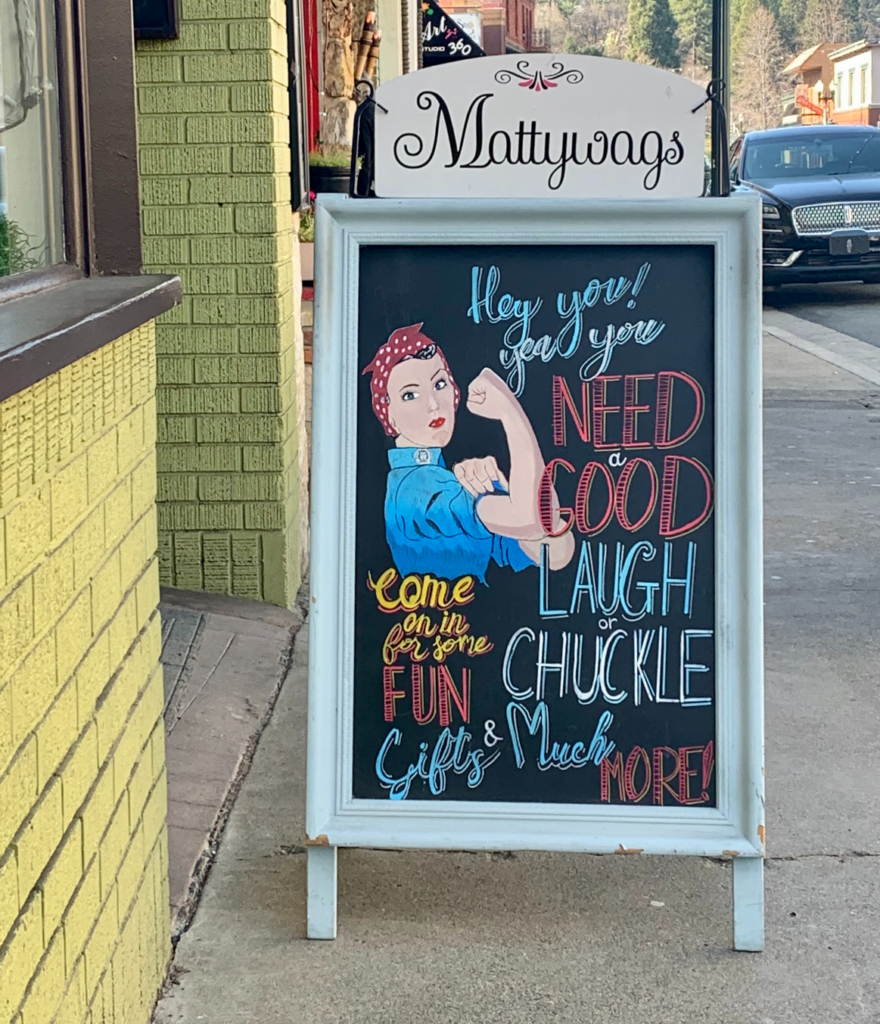 Art
STUDIO 360
Mattywags
Hey you!
yea you
NEED
a
GOOD
LAUGH
or
CHUCKLE
Come
on in
for some
FUN
Gifts & Much
MORE!